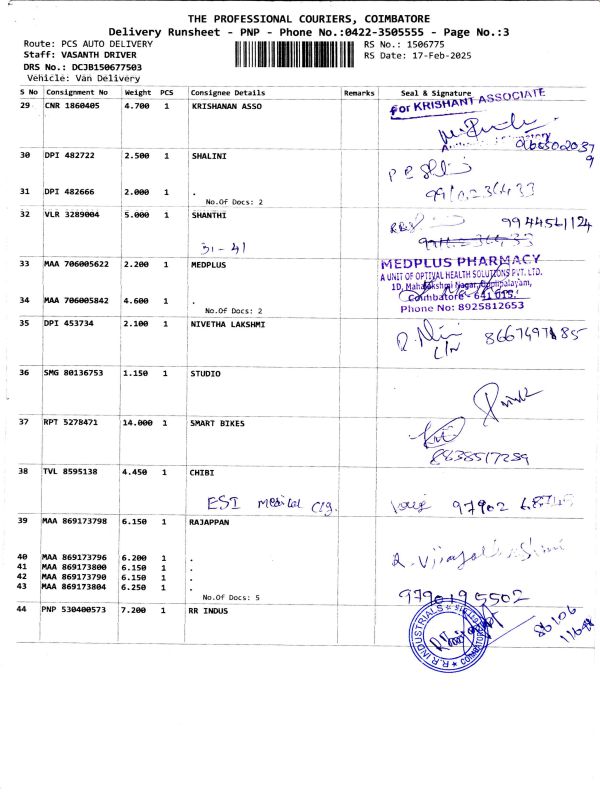 THE PROFESSIONAL COURIERS, COIMBATORE
Delivery Runsheet - PNP - Phone No.:0422-3505555 - Page No.:3
Route: PCS AUTO DELIVERY RS No.: 1506775
Staff: VASANTH DRIVER RS Date: 17-Feb-2025
DRS No.: DCJB150677503
Vehicle: Van Delivery
S No Consignment No Weight PCS Consignee Details Remarks Seal & Signature
29 CNR 1860405 4.700 1 KRISHANAN ASSO
For KRISHANT ASSOCIATE
30 DPI 482722 2.500 1 SHALINI
31 DPI 482666 2.000 1 .
No.Of Docs: 2
32 VLR 3289004 5.000 1 SHANTHI
9944561124
31-41
33 MAA 706005622 2.200 1 MEDPLUS
MEDPLUS PHARMACY
A UNIT OF OPTIVAL HEALTH SOLUTIONS PVT. LTD.
Coimbatore - 641 015.
Phone No: 8925812653
34 MAA 706005842 4.600 1 .
No.Of Docs: 2
35 DPI 453734 2.100 1 NIVETHA LAKSHMI
36 SMG 80136753 1.150 1 STUDIO
37 RPT 5278471 14.000 1 SMART BIKES
8838517289
38 TVL 8595138 4.450 1 CHIBI
ESI Medical Clg.
39 MAA 869173798 6.150 1 RAJAPPAN
40 MAA 869173796 6.200 1 .
41 MAA 869173800 6.150 1 .
42 MAA 869173790 6.150 1 .
43 MAA 869173804 6.250 1 .
No.Of Docs: 5
9790195502
44 PNP 530400573 7.200 1 RR INDUS
R.R. INDUSTRIALS